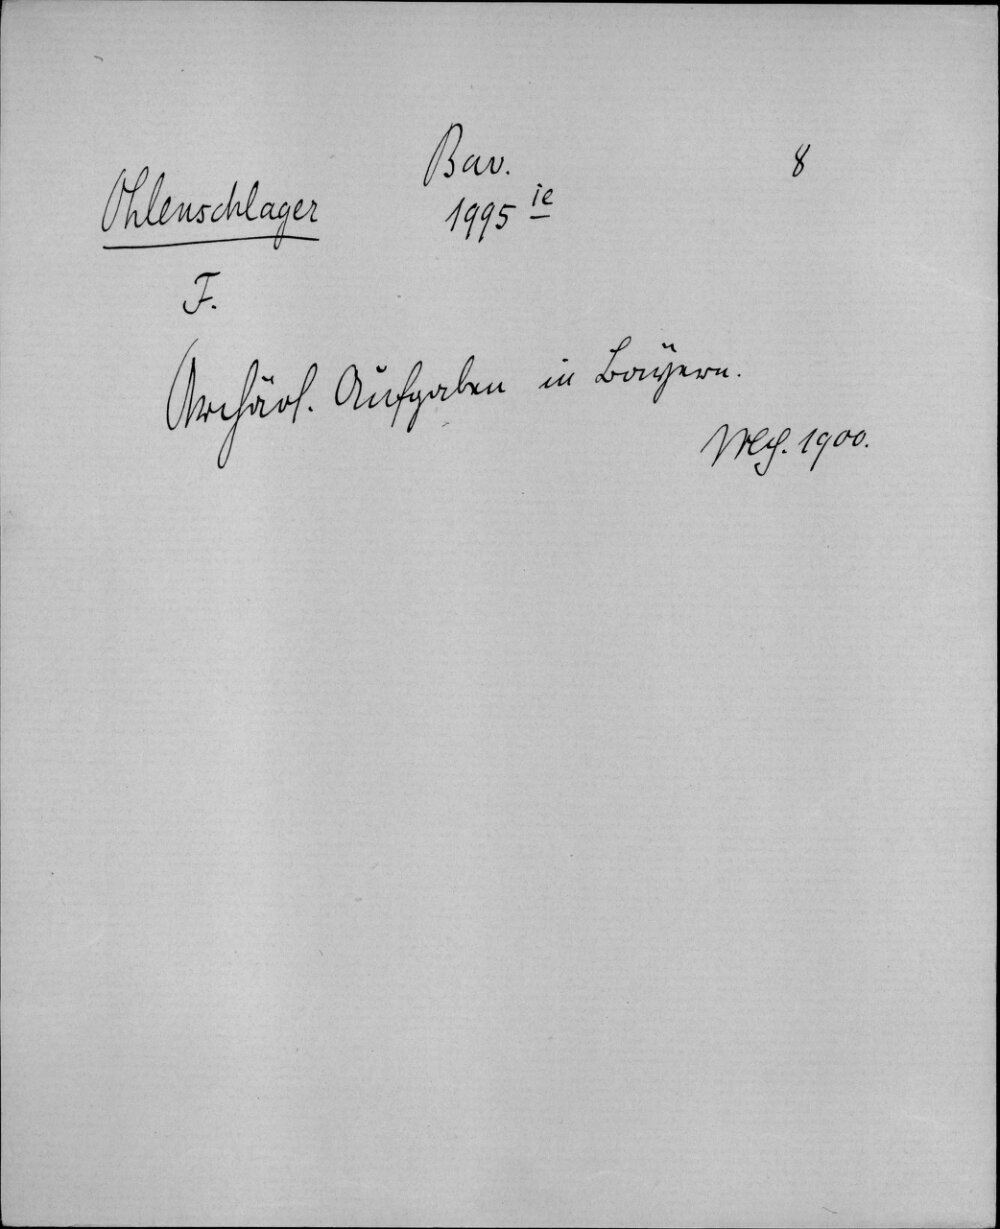 Bav. 8
Ohlenschlager 1995 ie
F.
Archäol. Aufgaben in Bayern.
Mch. 1900.